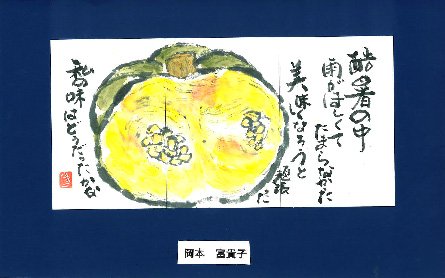 酷暑の中
雨がほしくて
たまらなかった
美味しくなろうと
頑張った
私の味はどうだったかな
岡本 富貴子